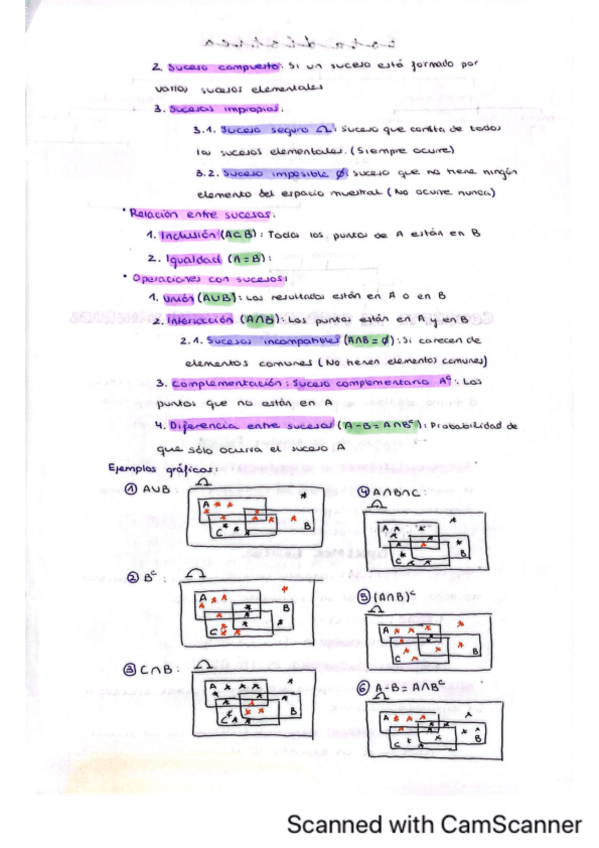 2. Suceso compuesto: Si un suceso está formado por
varios sucesos elementales
3. Sucesos impropios:
3.1. Suceso seguro Ω: suceso que consta de todos
los sucesos elementales. (Siempre ocurre)
3.2. Suceso imposible ∅: suceso que no tiene ningún
elemento del espacio muestral (No ocurre nunca)
· Relación entre sucesos:
1. Inclusión (A⊂B): Todos los puntos de A están en B
2. Igualdad (A=B):
· Operaciones con sucesos:
1. Unión (A∪B): Los resultados están en A o en B
2. Intersección (A∩B): Los puntos están en A y en B
2.1. Sucesos incompatibles (A∩B=∅): Si carecen de
elementos comunes (No tienen elementos comunes)
3. Complementación: Suceso complementario Aᶜ: Los
puntos que no están en A
4. Diferencia entre sucesos (A-B=A∩Bᶜ): Probabilidad de
que sólo ocurra el suceso A
Ejemplos gráficos:
① A∪B
Ω
A
B
C
② Bᶜ:
Ω
A
B
C
③ C∩B:
Ω
A
B
C
④ A∩B∩C:
Ω
A
B
C
⑤ (A∩B)ᶜ
Ω
A
B
C
⑥ A-B=A∩Bᶜ
Ω
A
B
C
Scanned with CamScanner